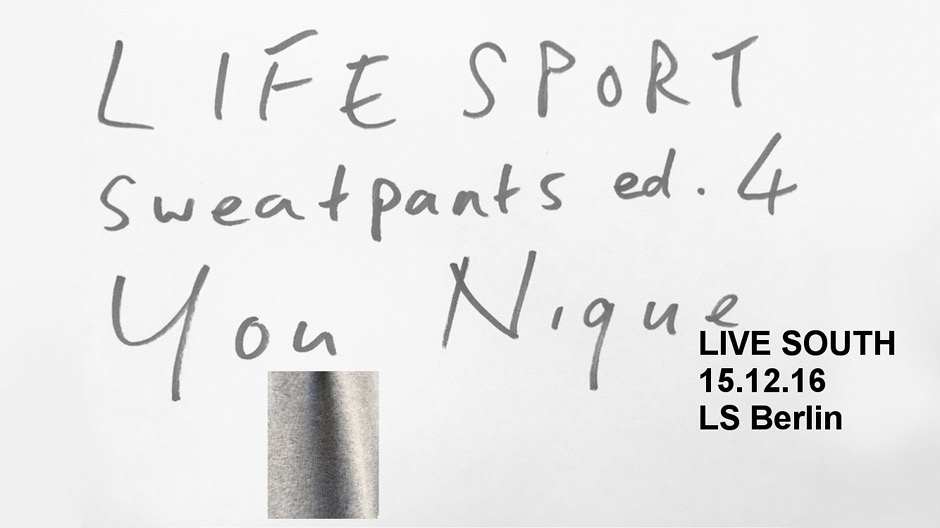 LIFE SPORT
sweatpants ed. 4
You Nique
LIVE SOUTH
15.12.16
LS Berlin